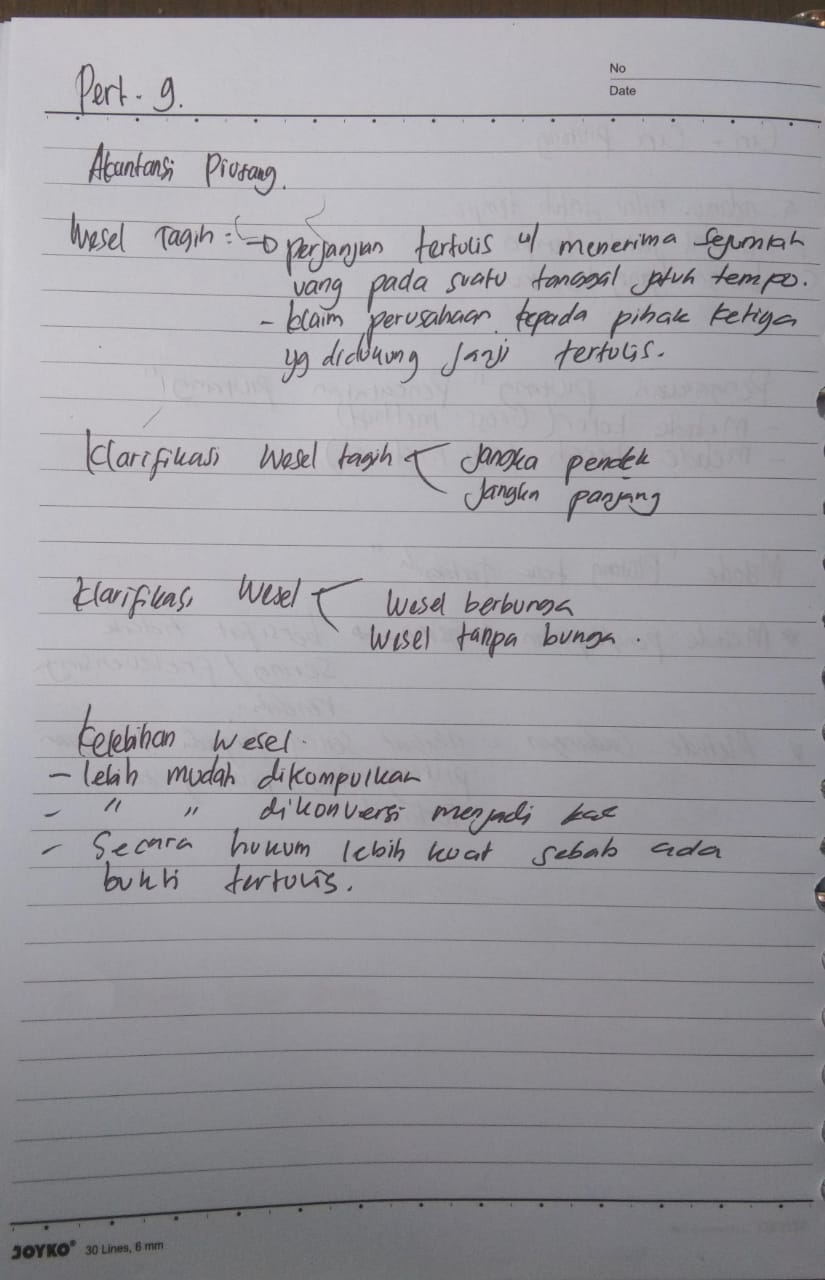 No
Date
Pert. 9.
Akuntansi Piutang.
Wesel Tagih : → perjanjian tertulis u/ menerima sejumlah
uang pada suatu tanggal jatuh tempo.
- klaim perusahaan kepada pihak ketiga
yg didukung janji tertulis.
Klarifikasi Wesel tagih < Jangka pendek
Jangka panjang
Klarifikasi Wesel < Wesel berbunga
Wesel tanpa bunga.
Kelebihan Wesel.
- lebih mudah dikumpulkan
- " " dikonversi menjadi kas
- Secara hukum lebih kuat sebab ada
bukti tertulis.
JOYKO® 30 Lines, 6 mm